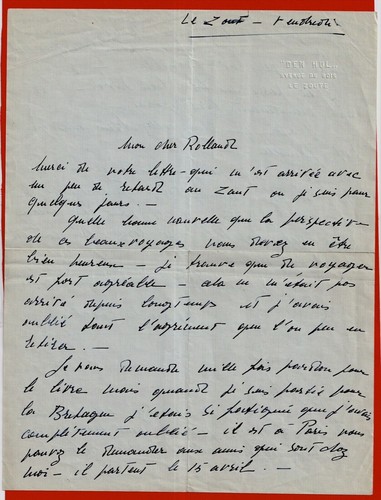 Le Zoute - Vendredi
Mon cher Rolland
Merci de votre lettre - qui m'est arrivée avec
un peu de retard au Zout où je suis pour
quelques jours. -
Quelle bonne nouvelle que la perspective
de ces beaux voyages vous devez en être
bien heureux - je trouve que de voyager
est fort agréable - cela ne m'était pas
arrivé depuis longtemps et j'avais
oublié tout l'agrément que l'on peu en
retirer. -
Je vous demande mille fois pardon pour
le livre mais quand je suis partie pour
la Bretagne j'étais si fatiguée que j'avais
complètement oublié - il est à Paris vous
pouvez le demander aux amis qui sont chez
moi - il partent le 15 avril. -